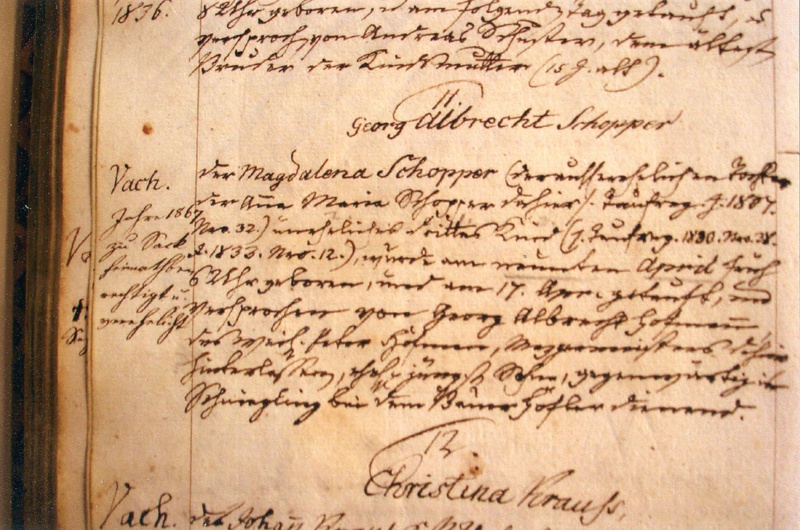 1836.
8 Uhr geboren, u. am folgend. Tag getauft, u.
versproch. von Andreas Schuster, dem ältest.
Bruder der Kindsmutter (15 J. alt).
11
Georg Albrecht Schopper
Vach.
Jahre 1867
zu Sack
heimathsbe
rechtigt u.
verehelicht
der Magdalena Schopper (der ausserehelichen Tochter
der Anna Maria Schopper dahier s. Taufreg. J. 1807.
Nro. 32.) uneheliches drittes Kind (s. Taufreg. 1830. Nro. 38.
1833. Nro. 12.), wurde am neunten April früh
Uhr geboren, und am 17. Apr. getauft, und
versprochen von Georg Albrecht Hofmann,
des weil. Peter Hofmann, Mezgermeisters dahier
hinterlassen, ehel. jüngst. Sohn, gegenwärtig in
Schniegling bei dem Bauer Höfler dienend.
12.
Christina Krauss.
Vach.
des Johann